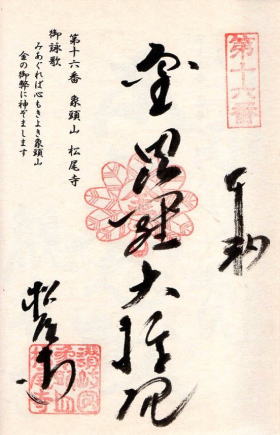 第十六番
奉拝
金毘羅大権現
松尾寺
第十六番 象頭山 松尾寺
御詠歌
みあぐれば心もきよき象頭山
金の御幣に神ぞまします